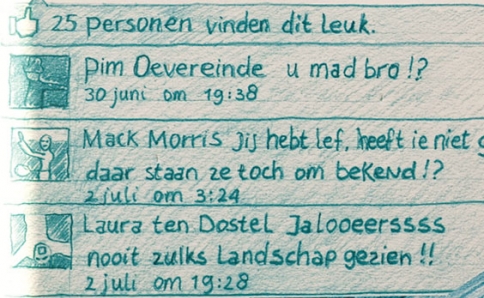 25 personen vinden dit leuk.
Pim Oevereinde u mad bro!?
30 juni om 19:38
Mack Morris Jij hebt lef, heeft ie niet
daar staan ze toch om bekend!?
2 juli om 3:24
Laura ten Dostel Jalooeerssss
nooit zulks landschap gezien!!
2 juli om 19:28